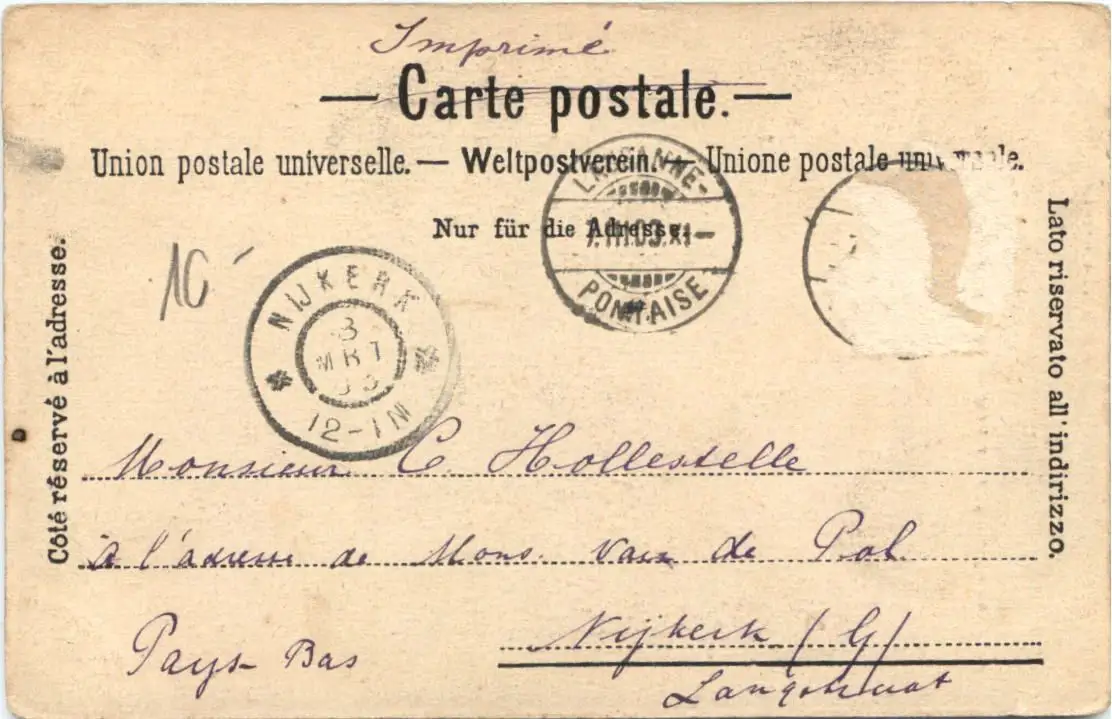 Imprimé
— Carte postale. —
Union postale universelle. — Weltpostverein. — Unione postale universale.
Nur für die Adresse.
Côté réservé à l'adresse.
Lato riservato all'indirizzo.
LAUSANNE-
PONTAISE
10
NIJKERK
3
MRT
03
12-1N
Monsieur C. Hollestelle
à l'adresse de Mons. van de Pol
Nijkerk (G)
Pays-Bas
Langstraat